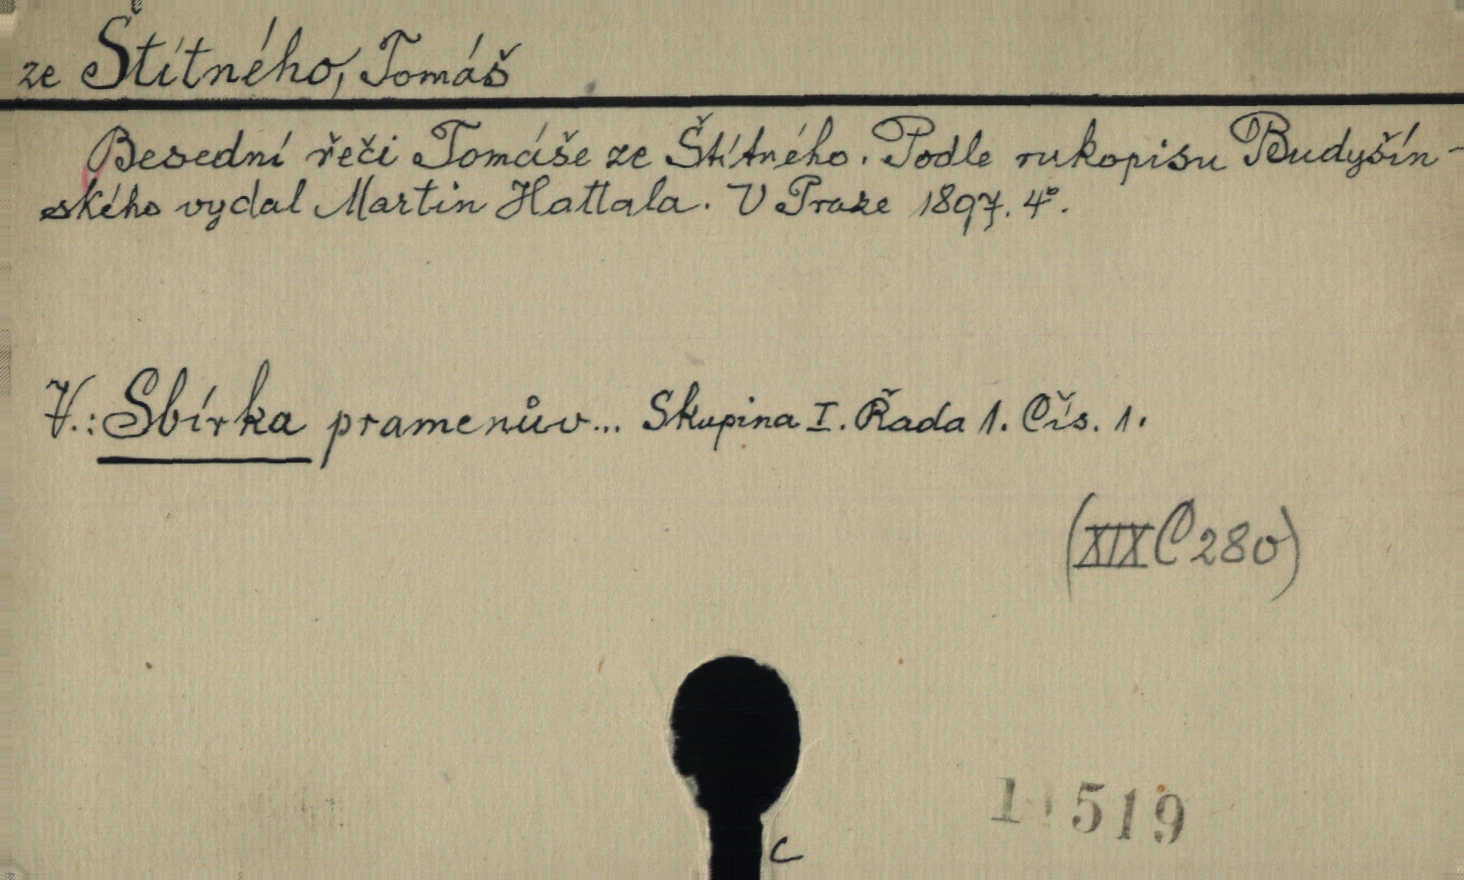 ze Štítného, Tomáš
Besední řeči Tomáše ze Štítného. Podle rukopisu Budyšín-
ského vydal Martin Hattala. V Praze 1897. 4°.
V.: Sbírka pramenův... Skupina I. Řada 1. Čís. 1.
(XIX C 280)
519
c